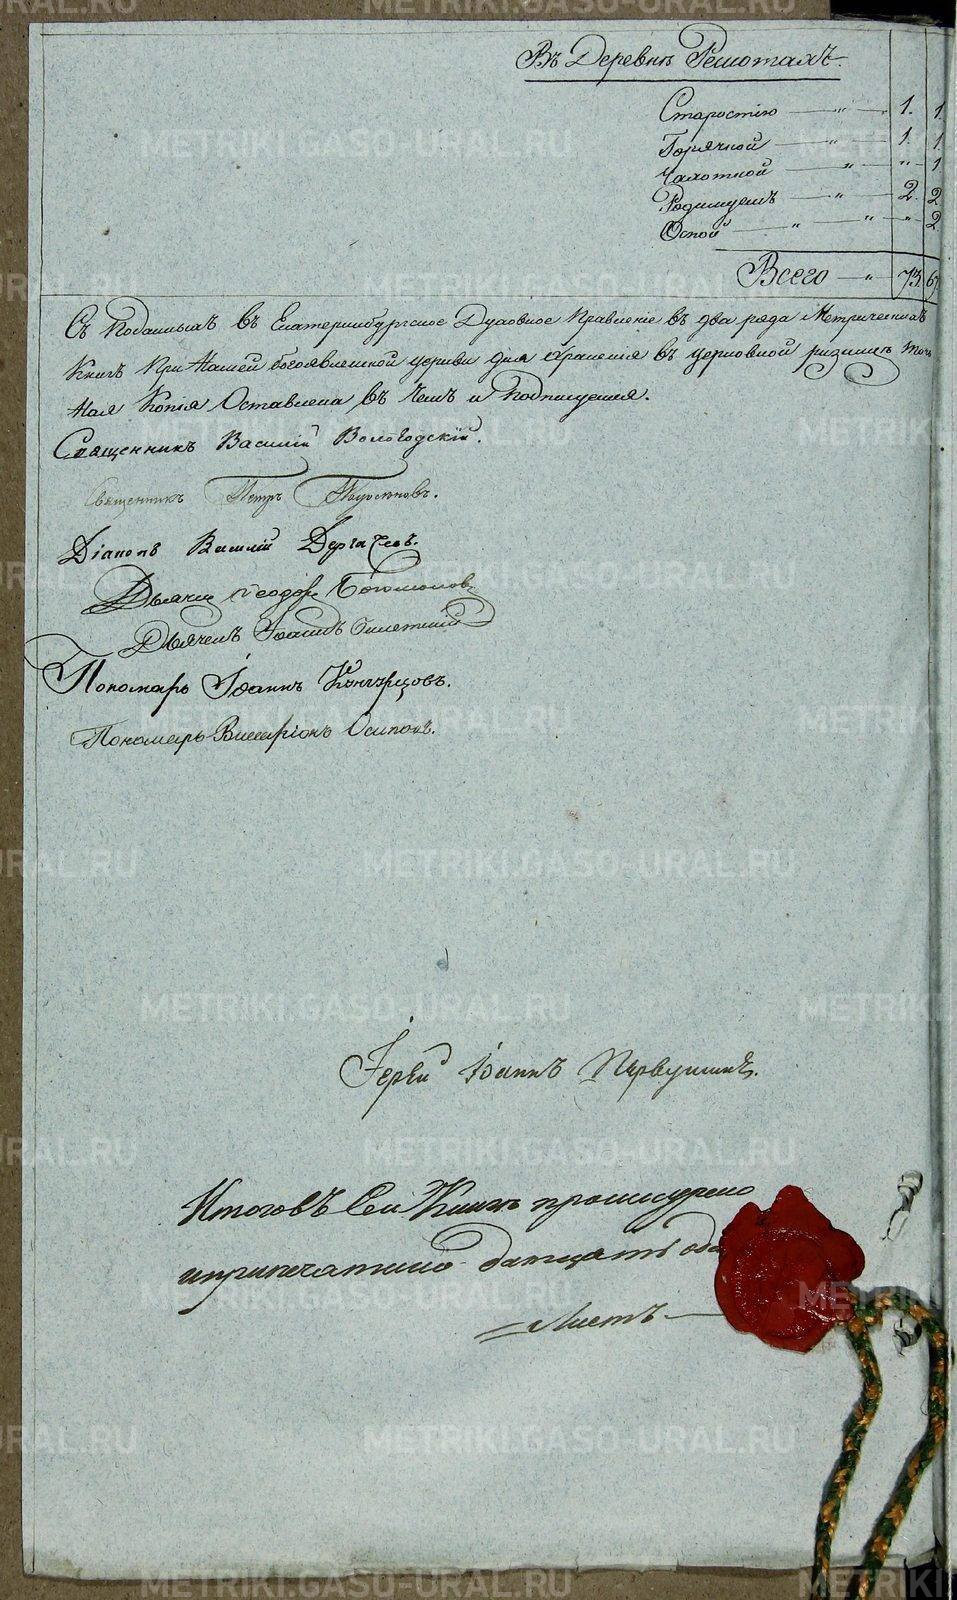 Въ Деревнѣ Решотахъ.
Старостію — " — 1. 1.
Горячкой — " — 1. 1.
Чахоткой — " — " — 1
Родимцемъ — " — 2. 2
Оспой — " — " — " 2
Всего — " — 73. 67
Съ Поданныхъ въ Екатеринбургское Духовное Правленіе въ два ряда Метрическихъ
Книгъ При Нашей богоявленской церкви для храненія въ церковной ризницѣ точ
ная Копія Оставлена въ чемъ и Подписуемся.
Священникъ Василій Вологодскій.
Священникъ Петръ
Діаконъ Василій Дергачевъ.
Дьячекъ Феодоръ Богомолов
Дьячекъ Іоаннъ
Пономарь Іоаннъ Кунгурцовъ.
Пономарь Висаріонъ Осиповъ.
Іерей Іоаннъ Первушинъ.
Итоговъ Сей Книгѣ прошнурено
иприпечатано дватцать
Листъ
METRIKI.GASO-URAL.RU